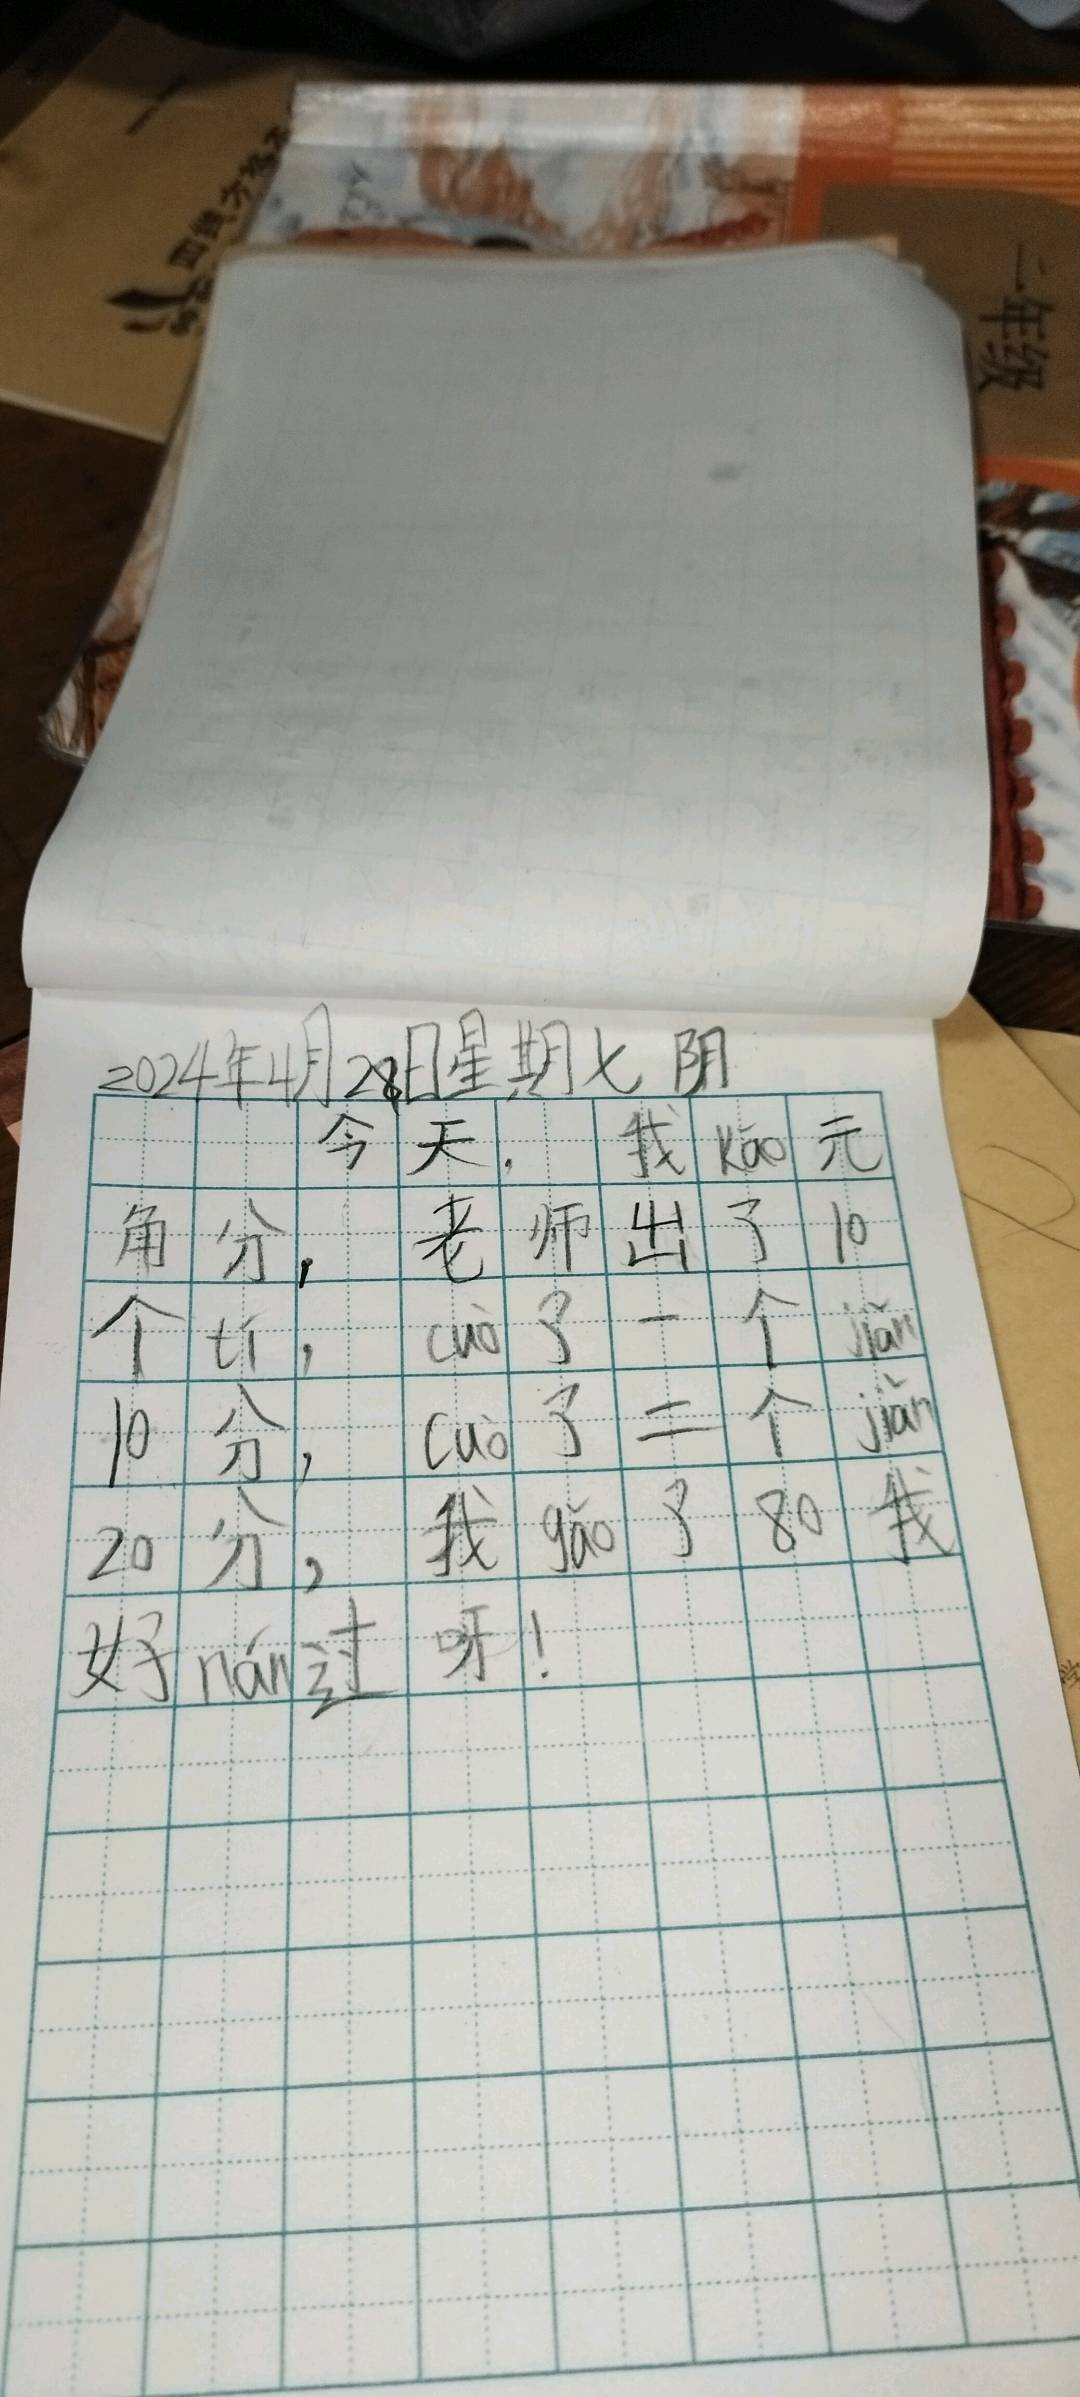 二年级
2024年4月28日星期七 阴
今天, 我kǎo元
角分, 老师出了10
个tí, cuò了一个jiǎn
10分, cuò了二个jiǎn
20分, 我gǎo了80我
好nán过呀!